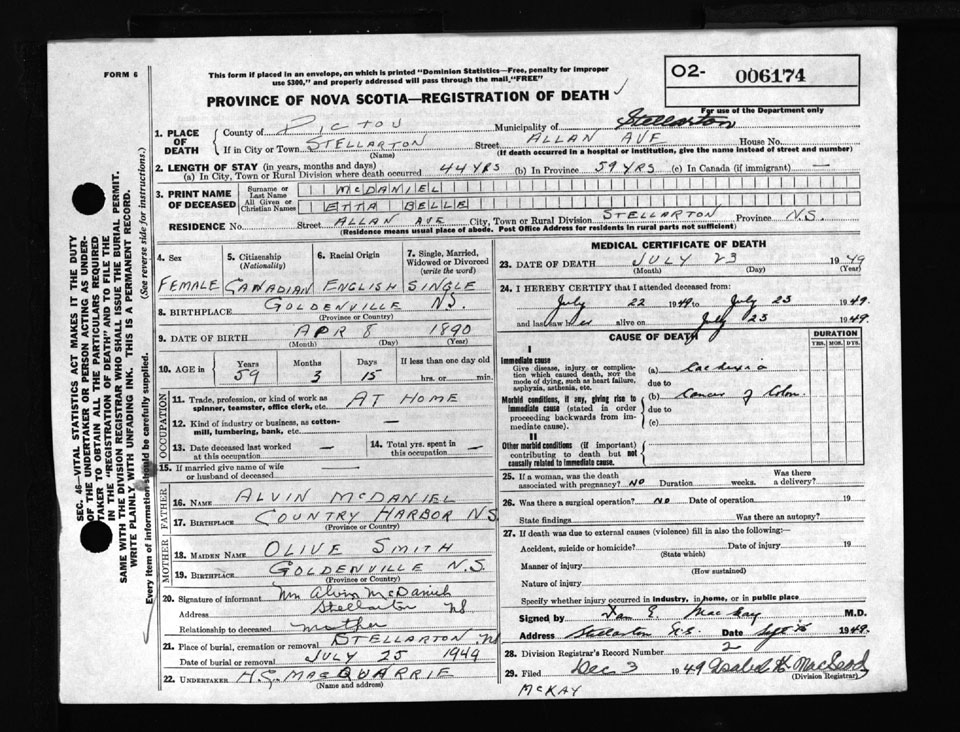 FORM 6
This form if placed in an envelope, on which is printed "Dominion Statistics—Free, penalty for improper
use $300," and properly addressed will pass through the mail "FREE"
O2- 006174
For use of the Department only
PROVINCE OF NOVA SCOTIA—REGISTRATION OF DEATH
SEC. 46—VITAL STATISTICS ACT MAKES IT THE DUTY
OF THE UNDERTAKER OR PERSON ACTING AS UNDER-
TAKER TO OBTAIN ALL THE PARTICULARS REQUIRED
IN THE "REGISTRATION OF DEATH" AND TO FILE THE
SAME WITH THE DIVISION REGISTRAR WHO SHALL ISSUE THE BURIAL PERMIT.
WRITE PLAINLY WITH UNFADING INK. THIS IS A PERMANENT RECORD.
Every item of information should be carefully supplied. (See reverse side for instructions.)
1. PLACE OF DEATH
County of PICTOU Municipality of Stellarton
If in City or Town STELLARTON Street ALLAN AVE House No.
(Name) (If death occurred in a hospital or institution, give the name instead of street and number)
2. LENGTH OF STAY (in years, months and days)
(a) In City, Town or Rural Division where death occurred 44 YRS (b) In Province 59 YRS (c) In Canada (if immigrant) —
3. PRINT NAME OF DECEASED
Surname or Last Name MCDANIEL
All Given or Christian Names ETTA BELLE
RESIDENCE No. Street ALLAN AVE City, Town or Rural Division STELLARTON Province N.S.
(Residence means usual place of abode. Post Office Address for residents in rural parts not sufficient)
4. Sex 5. Citizenship (Nationality) 6. Racial Origin 7. Single, Married, Widowed or Divorced (write the word)
FEMALE CANADIAN ENGLISH SINGLE
8. BIRTHPLACE GOLDENVILLE N.S.
(Province or Country)
9. DATE OF BIRTH APR 8 1890
(Month) (Day) (Year)
10. AGE in Years Months Days If less than one day old
59 3 15 hrs. or min.
OCCUPATION
11. Trade, profession, or kind of work as AT HOME
spinner, teamster, office clerk, etc.
12. Kind of industry or business, as cotton-
mill, lumbering, bank, etc. —
13. Date deceased last worked at this occupation — 14. Total yrs. spent in this occupation —
15. If married give name of wife
or husband of deceased
FATHER
16. NAME ALVIN MCDANIEL
17. BIRTHPLACE COUNTRY HARBOR N.S.
(Province or Country)
MOTHER
18. MAIDEN NAME OLIVE SMITH
19. BIRTHPLACE GOLDENVILLE N.S.
(Province or Country)
20. Signature of informant Mrs Alvin McDaniel
Address Stellarton NS
Relationship to deceased mother
21. Place of burial, cremation or removal STELLARTON NS
Date of burial or removal JULY 25 1949
22. UNDERTAKER H.G. MACQUARRIE
(Name and address)
MEDICAL CERTIFICATE OF DEATH
23. DATE OF DEATH JULY 23 1949
(Month) (Day) (Year)
24. I HEREBY CERTIFY that I attended deceased from:
July 22 1949 to July 23 1949.
and last saw her alive on July 23 1949.
CAUSE OF DEATH DURATION
YRS. MOS. DYS.
I
Immediate cause
Give disease, injury or complica-
tion which caused death, not the
mode of dying, such as heart failure,
asphyxia, asthenia, etc.
(a) Cachexia
due to
Morbid conditions, if any, giving rise to
immediate cause (stated in order
proceeding backwards from im-
mediate cause).
(b) Cancer of Colon
due to
(c)
II
Other morbid conditions (if important)
contributing to death but not
causally related to immediate cause.
25. If a woman, was the death associated with pregnancy? NO Duration weeks. Was there a delivery?
26. Was there a surgical operation? NO Date of operation 19
State findings Was there an autopsy?
27. If death was due to external causes (violence) fill in also the following:—
Accident, suicide or homicide? Date of injury 19
(State which)
Manner of injury
(How sustained)
Nature of injury
Specify whether injury occurred in industry, in home, or in public place
Signed by E MacKay M.D.
Address Stellarton N.S. Date Sept 1949.
28. Division Registrar's Record Number 2
29. Filed Dec 3 1949 Isabel K. MacLeod
(Division Registrar)
MCKAY